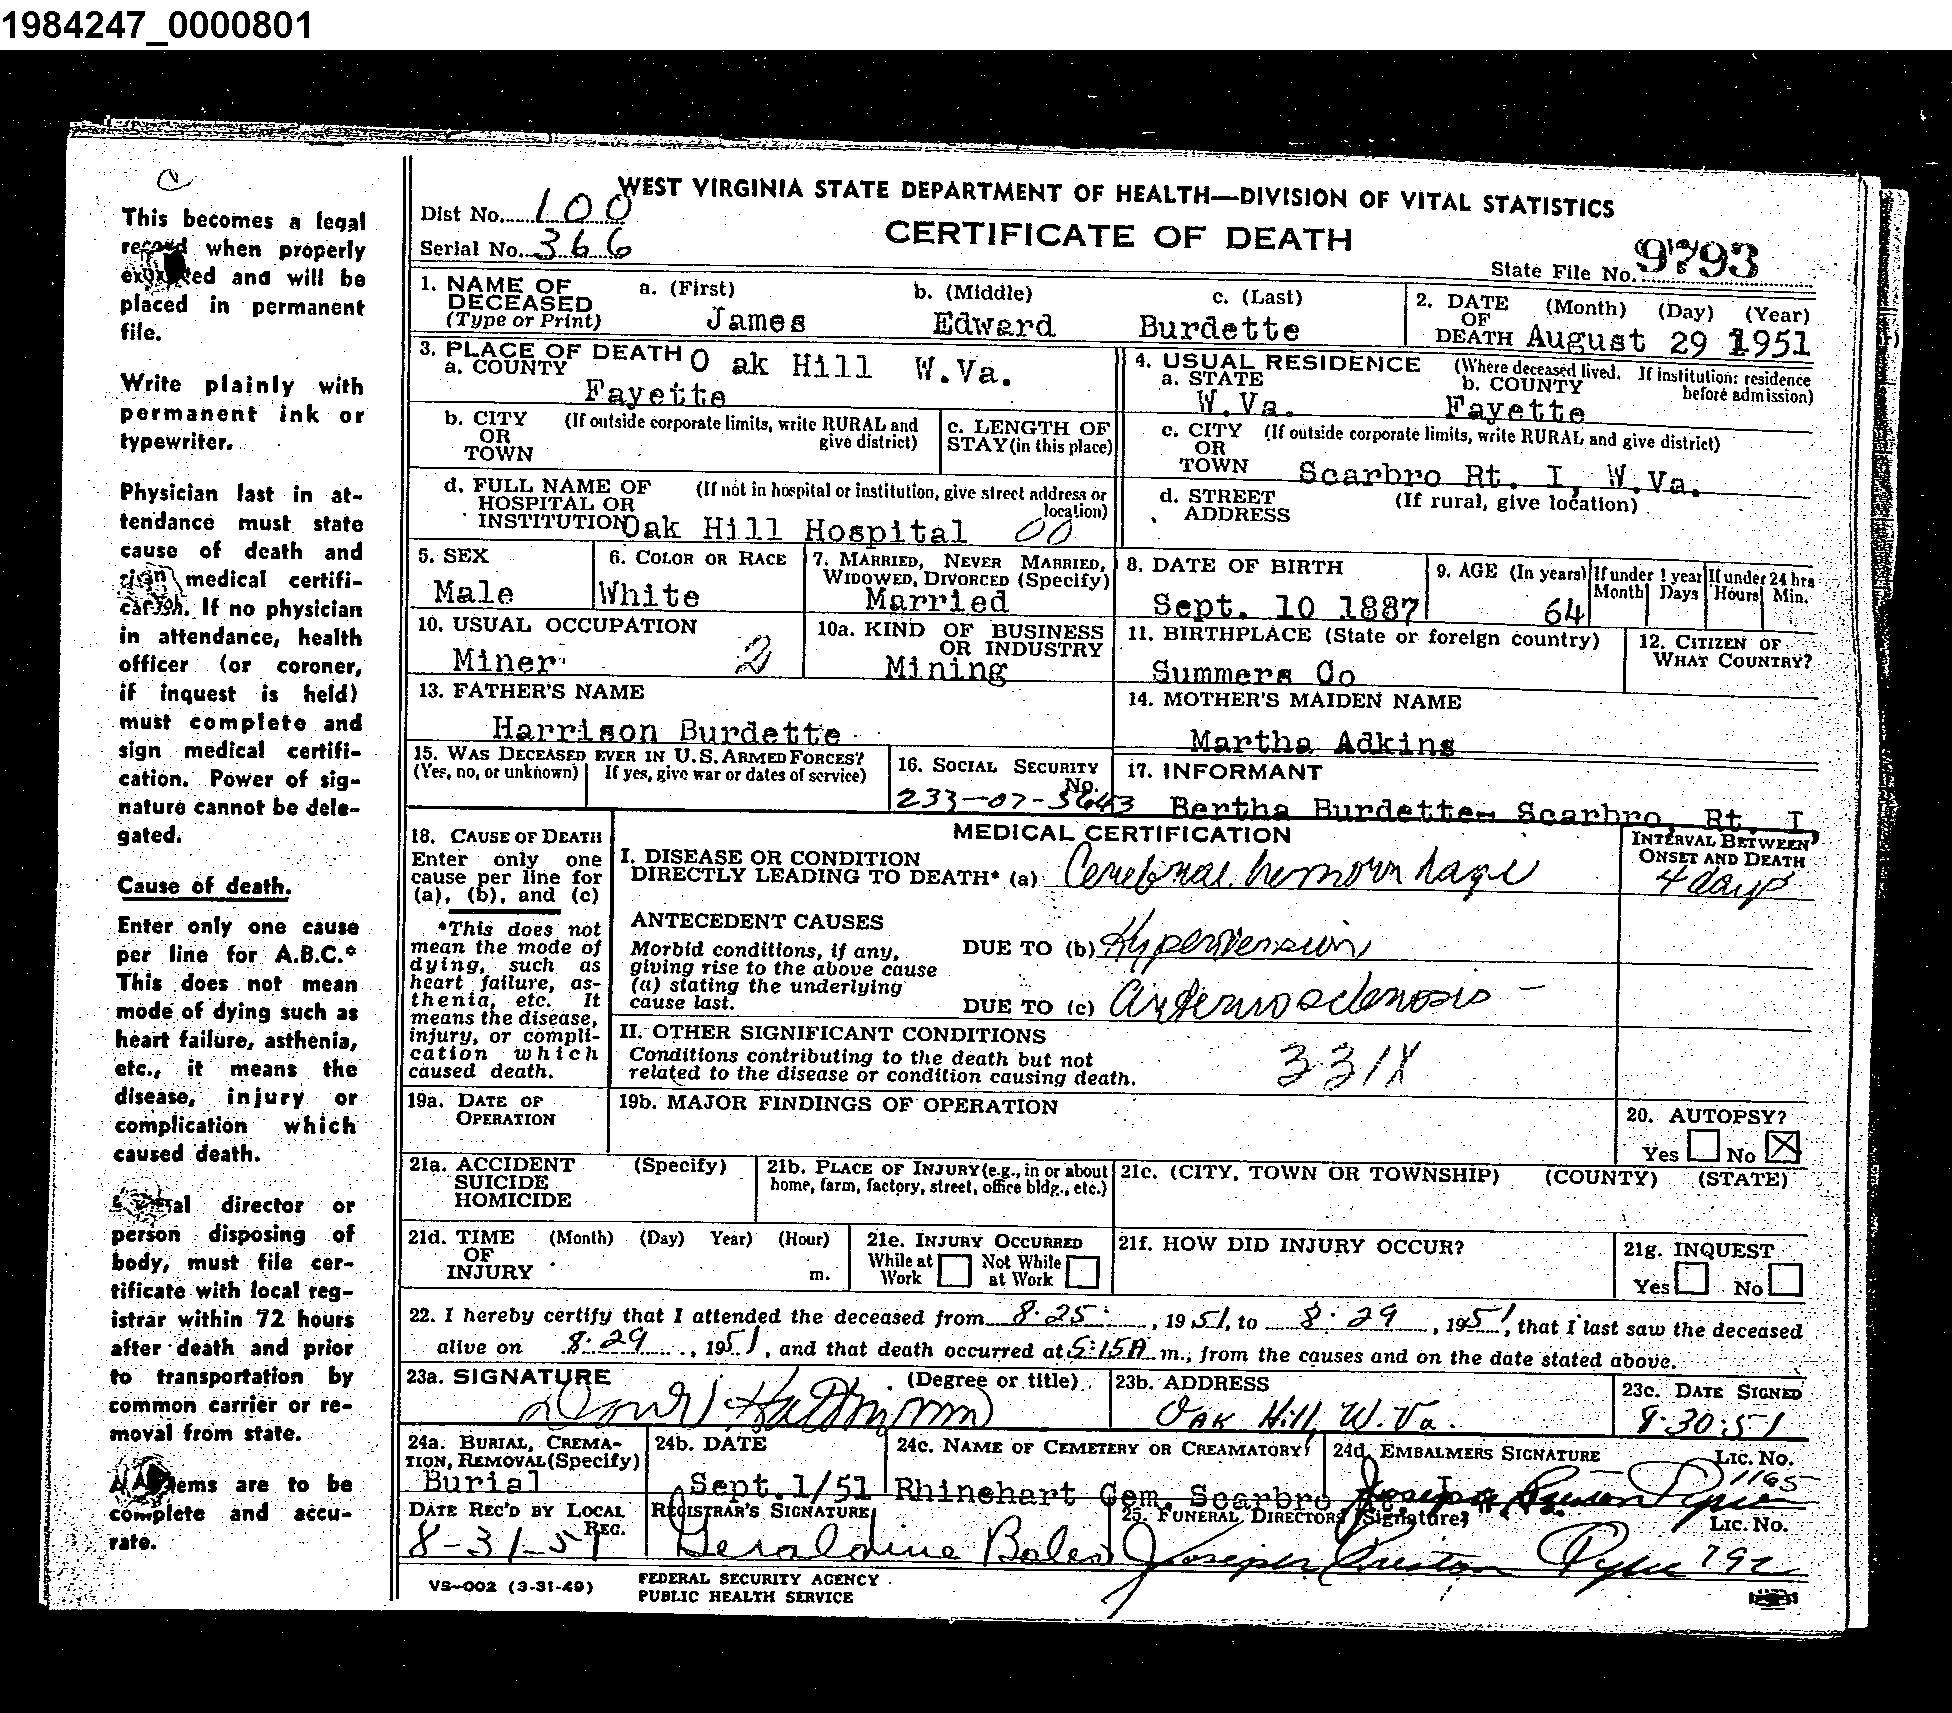 1984247_0000801
This becomes a legal
record when properly
executed and will be
placed in permanent
file.
Write plainly with
permanent ink or
typewriter.
Physician last in at-
tendance must state
cause of death and
sign medical certifi-
cation. If no physician
in attendance, health
officer (or coroner,
if inquest is held)
must complete and
sign medical certifi-
cation. Power of sig-
nature cannot be dele-
gated.
Cause of death.
Enter only one cause
per line for A.B.C.*
This does not mean
mode of dying such as
heart failure, asthenia,
etc., it means the
disease, injury or
complication which
caused death.
Funeral director or
person disposing of
body, must file cer-
tificate with local reg-
istrar within 72 hours
after death and prior
to transportation by
common carrier or re-
moval from state.
All items are to be
complete and accu-
rate.
WEST VIRGINIA STATE DEPARTMENT OF HEALTH—DIVISION OF VITAL STATISTICS
Dist No. 100
CERTIFICATE OF DEATH
Serial No. 366
State File No. 9793
1. NAME OF DECEASED (Type or Print) a. (First) James b. (Middle) Edward c. (Last) Burdette
2. DATE OF DEATH (Month) (Day) (Year) August 29 1951
3. PLACE OF DEATH O ak Hill W.Va.
a. COUNTY Fayette
4. USUAL RESIDENCE (Where deceased lived. If institution: residence before admission)
a. STATE W.Va. b. COUNTY Fayette
b. CITY OR TOWN (If outside corporate limits, write RURAL and give district)
c. LENGTH OF STAY (in this place)
c. CITY OR TOWN (If outside corporate limits, write RURAL and give district) Scarbro Rt. I, W.Va.
d. FULL NAME OF HOSPITAL OR INSTITUTION (If not in hospital or institution, give street address or location) Oak Hill Hospital 00
d. STREET ADDRESS (If rural, give location)
5. SEX Male
6. COLOR OR RACE White
7. MARRIED, NEVER MARRIED, WIDOWED, DIVORCED (Specify) Married
8. DATE OF BIRTH Sept. 10 1887
9. AGE (In years) 64 If under 1 year Month Days If under 24 hrs Hours Min.
10. USUAL OCCUPATION Miner 2
10a. KIND OF BUSINESS OR INDUSTRY Mining
11. BIRTHPLACE (State or foreign country) Summers Co
12. CITIZEN OF WHAT COUNTRY?
13. FATHER'S NAME Harrison Burdette
14. MOTHER'S MAIDEN NAME Martha Adkins
15. WAS DECEASED EVER IN U.S. ARMED FORCES? (Yes, no, or unknown) If yes, give war or dates of service)
16. SOCIAL SECURITY No. 233-07-3643
17. INFORMANT Bertha Burdette- Scarbro, Rt. I,
18. CAUSE OF DEATH
Enter only one cause per line for (a), (b), and (c)
*This does not mean the mode of dying, such as heart failure, asthenia, etc. It means the disease, injury, or complication which caused death.
MEDICAL CERTIFICATION
INTERVAL BETWEEN ONSET AND DEATH
I. DISEASE OR CONDITION DIRECTLY LEADING TO DEATH* (a) Cerebral hemorrhage 4 days
ANTECEDENT CAUSES
Morbid conditions, if any, giving rise to the above cause (a) stating the underlying cause last.
DUE TO (b) Hypertension
DUE TO (c) Arteriosclerosis -
II. OTHER SIGNIFICANT CONDITIONS
Conditions contributing to the death but not related to the disease or condition causing death.
331X
19a. DATE OF OPERATION
19b. MAJOR FINDINGS OF OPERATION
20. AUTOPSY? Yes No X
21a. ACCIDENT SUICIDE HOMICIDE (Specify)
21b. PLACE OF INJURY (e.g., in or about home, farm, factory, street, office bldg., etc.)
21c. (CITY, TOWN OR TOWNSHIP) (COUNTY) (STATE)
21d. TIME OF INJURY (Month) (Day) Year) (Hour) m.
21e. INJURY OCCURRED While at Work Not While at Work
21f. HOW DID INJURY OCCUR?
21g. INQUEST Yes No
22. I hereby certify that I attended the deceased from 8-25, 1951, to 8-29, 1951, that I last saw the deceased
alive on 8-29, 1951, and that death occurred at 5:15A m., from the causes and on the date stated above.
23a. SIGNATURE (Degree or title)
23b. ADDRESS Oak Hill, W.Va.
23c. DATE SIGNED 8-30-51
24a. BURIAL, CREMATION, REMOVAL (Specify) Burial
24b. DATE Sept. 1/51
24c. NAME OF CEMETERY OR CREAMATORY Rhinehart Cem. Scarbro Rt. I
24d. EMBALMERS SIGNATURE Joseph Preston Pyne Lic. No. 1165
DATE REC'D BY LOCAL REG. 8-31-51
REGISTRAR'S SIGNATURE Geraldine Boles
25. FUNERAL DIRECTORS (Signature) Joseph Preston Pyne Lic. No. 792
VS-002 (3-31-49)
FEDERAL SECURITY AGENCY
PUBLIC HEALTH SERVICE